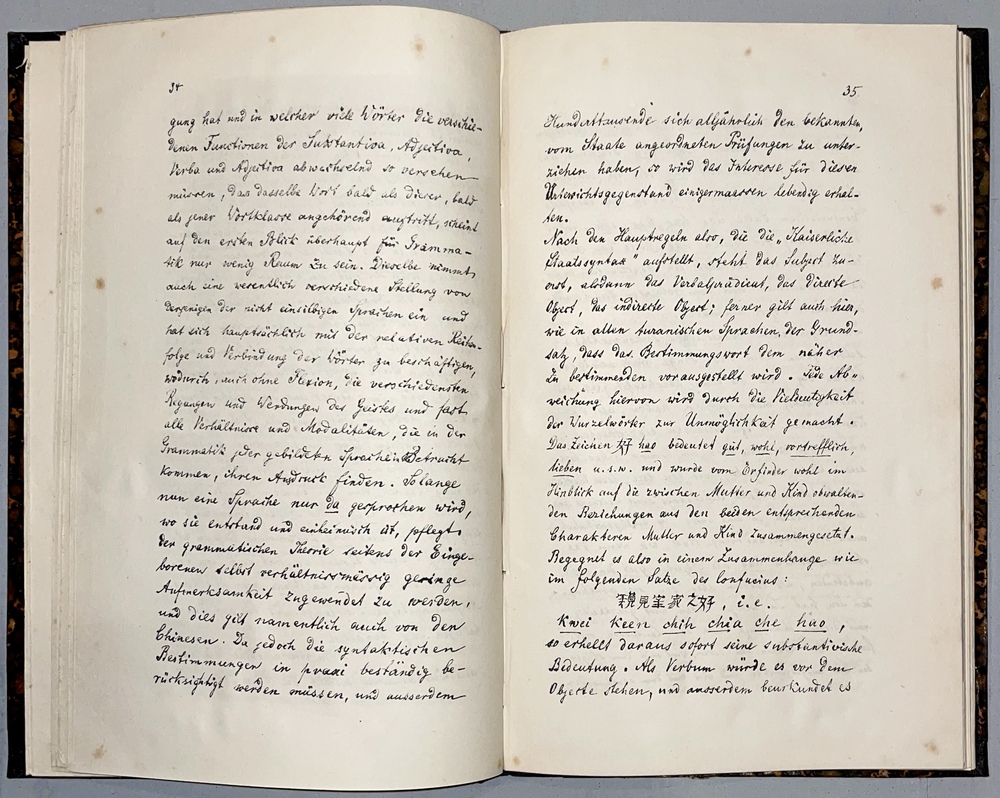 34
gung hat und in welcher viele Wörter die verschie-
denen Functionen der Substantiva, Adjectiva,
Verba und Adjectiva abwechselnd so versehen
müssen, das dasselbe Wort bald als dieser, bald
als jener Wortklasse angehörend auftritt, scheint
auf den ersten Blick überhaupt für Gramma-
tik nur wenig Raum zu sein. Dieselbe nimmt
auch eine wesentlich verschiedene Stellung von
derjenigen der nicht einsilbigen Sprachen ein und
hat sich hauptsächlich mit der relativen Reihen-
folge und Verbindung der Wörter zu beschäftigen,
wodurch, auch ohne Flexion, die verschiedensten
Regungen und Wendungen des Geistes und fast
alle Verhältnisse und Modalitäten, die in der
Grammatik jeder gebildeten Sprache in Betracht
kommen, ihren Ausdruck finden. Solange
nun eine Sprache nur da gesprochen wird,
wo sie entstand und einheimisch ist, pflegt
der grammatischen Theorie seitens der Einge-
borenen selbst verhältnissmässig geringe
Aufmerksamkeit zugewendet zu werden,
und dies gilt namentlich auch von den
Chinesen. Da jedoch die syntaktischen
Bestimmungen in praxi beständig be-
rücksichtigt werden müssen, und ausserdem
35
Hunderttausende sich alljährlich den bekannten,
vom Staate angeordneten Prüfungen zu unter-
ziehen haben, so wird das Interesse für diesen
Unterrichtsgegenstand einigermaassen lebendig erhal-
ten.
Nach den Hauptregeln also, die die „Kaiserliche
Staatssyntax" aufstellt, steht das Subject zu-
erst, alsdann das Verbalprädicat, das directe
Object, das indirecte Object; ferner gilt auch hier,
wie in allen turanischen Sprachen, der Grund-
satz, dass das Bestimmungswort dem näher
zu bestimmenden vorausgestellt wird. Jede Ab-
weichung hiervon wird durch die Vieldeutigkeit
der Wurzelwörter zur Unmöglichkeit gemacht.
Das Zeichen 好 hao bedeutet gut, wohl, vortrefflich,
lieben u.s.w. und wurde vom Erfinder wohl im
Hinblick auf die zwischen Mutter und Kind obwalten-
den Beziehungen aus den beiden entsprechenden
Charakteren Mutter und Kind zusammengesetzt.
Begegnet es also in einem Zusammenhange wie
im folgenden Satze des Confucius:
見室家之好, i.e.
Kwei keen chih chia che hao,
so erhellt daraus sofort seine substantivische
Bedeutung. Als Verbum würde es vor dem
Objecte stehen, und ausserdem beurkundet es